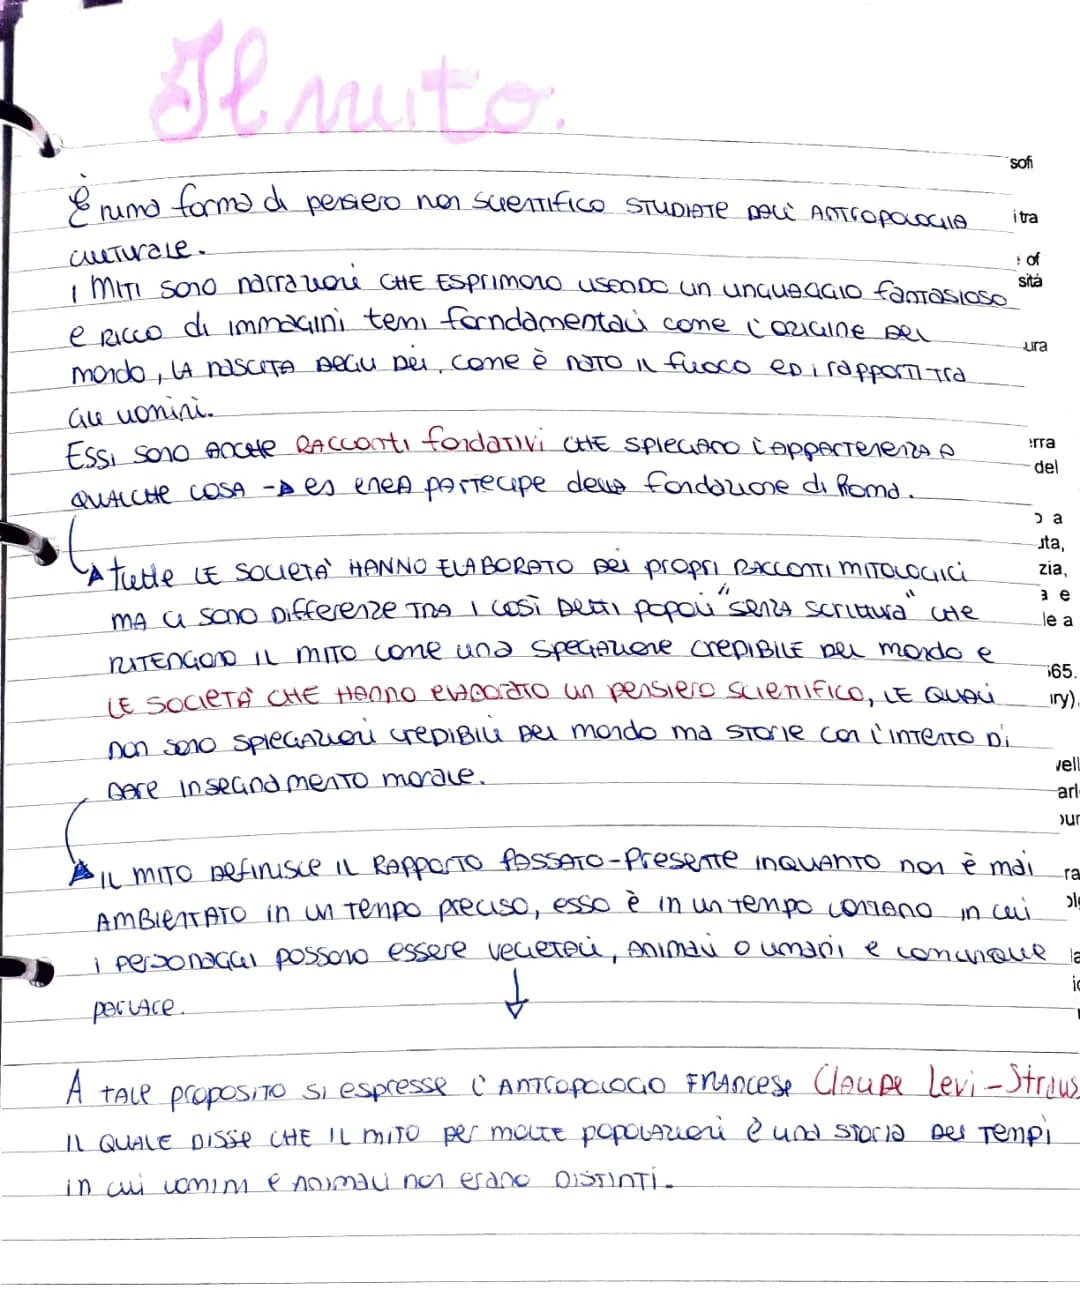 Il mito.
È numa forma di pensiero non scientifico STUDIATE DALL' ANTROPOLOGIA
culturale.
I MITI sono narrazioni CHE ESPRIMONO USANDO un linguaggio fantasioso
e RICCO di immagini temi forndamentali come l'origine DEL
mondo, LA NASCITA DEGLI DEI, come è NATO IL fuoco ED i rapporti TRA
GLI uomini.
ESSI sono ANCHE RACCONTI fondativi CHE SPIEGANO l'APPARTENENZA A
QUALCHE COSA → es enea partecipe della fondazione di Roma.
tutte LE SOCIETÀ HANNO ELABORATO DEI propri RACCONTI MITOLOGICI
MA ci sono DIFFERENZE TRA I così DETTI popoli "SENZA SCRITTURA" CHE
RITENGONO IL MITO come una SPEGAZIONE CREDIBILE DEL mondo e
LE SOCIETÀ CHE HANNO elaborato un pensiero scientifico, LE QUALI
non sono SPIEGAZIONI CREDIBILI DEL mondo ma STORIE con l'INTENTO DI
DARE INSEGNAMENTO morale.
IL MITO DEFINISCE IL RAPPORTO PASSATO-PRESENTE INQUANTO non è mai
AMBIENTATO in un TEMPO preciso, esso è in un TEMPO LONTANO in cui
i PERSONAGGI possono essere VEGETALI, ANIMALI o umani e comunque
PARLARE.
A TALE PROPOSITO si espresse l'ANTROPOLOGO FRANCESE Claude Levi-Straus
IL QUALE DISSE CHE IL MITO per molte popolazioni è una STORIA DEI TEMPI
in cui uomini e ANIMALI non erano DISTINTI.
sofi
itra
of
sità
ura
erra
del
a
zia,
e
le a
65.